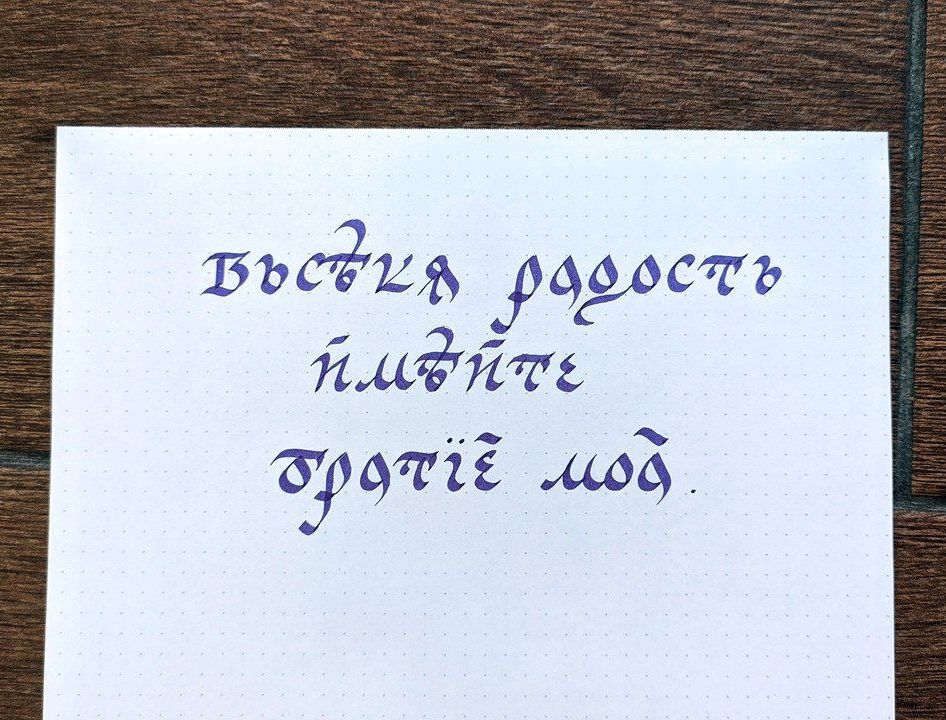 Вьсѣкя радость
и҆мѣйте
братїе҆ моа҆.